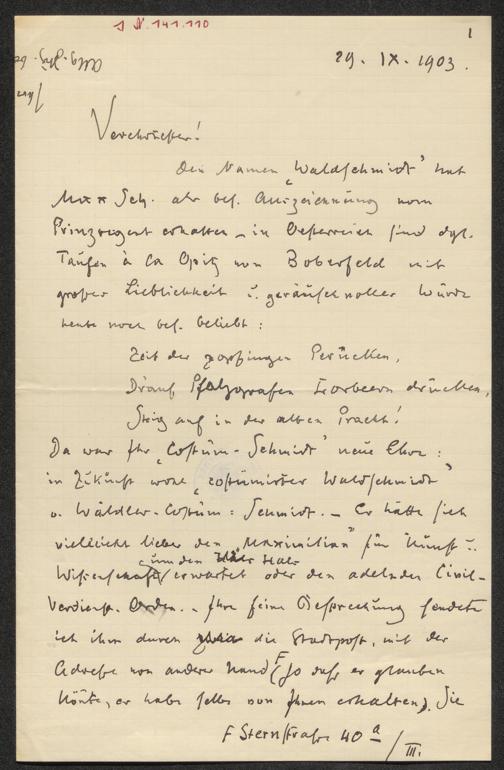 I N. 141.110
1
29. IX. 1903.
Verehrtester!
Den Namen „Waldschmidt“ hat
Max Sch. als bes. Auszeichnung vom
Prinzregent erhalten – in Oesterreich sind dgl.
Taufen à la Opitz von Boberfeld mit
großer Lieblichkeit u. geräuschvoller Würde
heute noch bes. beliebt:
Zeit der zopfigen Perücken,
Drauf Pfalzgrafen Lorbeern drücken,
Steig auf in der alten Pracht!
Da war Ihr „Costüm-Schmidt“ neue Ehre:
in Zukunft wohl „costümirter Waldschmidt“
o. Wäldler-Costüm-Schmidt. – Er hätte sich
vielleicht lieber den „Maximilian“ für Kunst u.
um den Hals
Wissenschaft erwartet oder den adelnden Civil-
Verdienst-Orden. – Ihre feine Besprechung sendete
ich ihm durch die Stadtpost, mit der
Adresse von anderer Hand (so daß er glauben
könnte, er habe selbes von Ihnen erhalten). Sie
F Sternstraße 40 a/III.